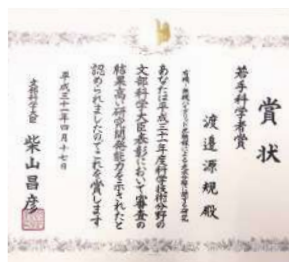 賞状
若手科学者賞
渡邉源規殿
あなたは平成三十一年度科学技術分野の
文部科学大臣表彰において審査の
結果高い研究開発能力を示されたと
認められましたのでこれを賞します
平成三十一年四月十七日
文部科学大臣
柴山昌彦